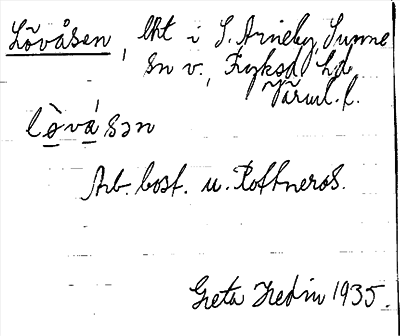 Lövåsen, lht i S. Arneby, Sunne
sn v., Fryksd. hd
Värml. l.
lò̱vá̱sən
Arb. bost. u. Rottneros.
Greta Hedin 1935.